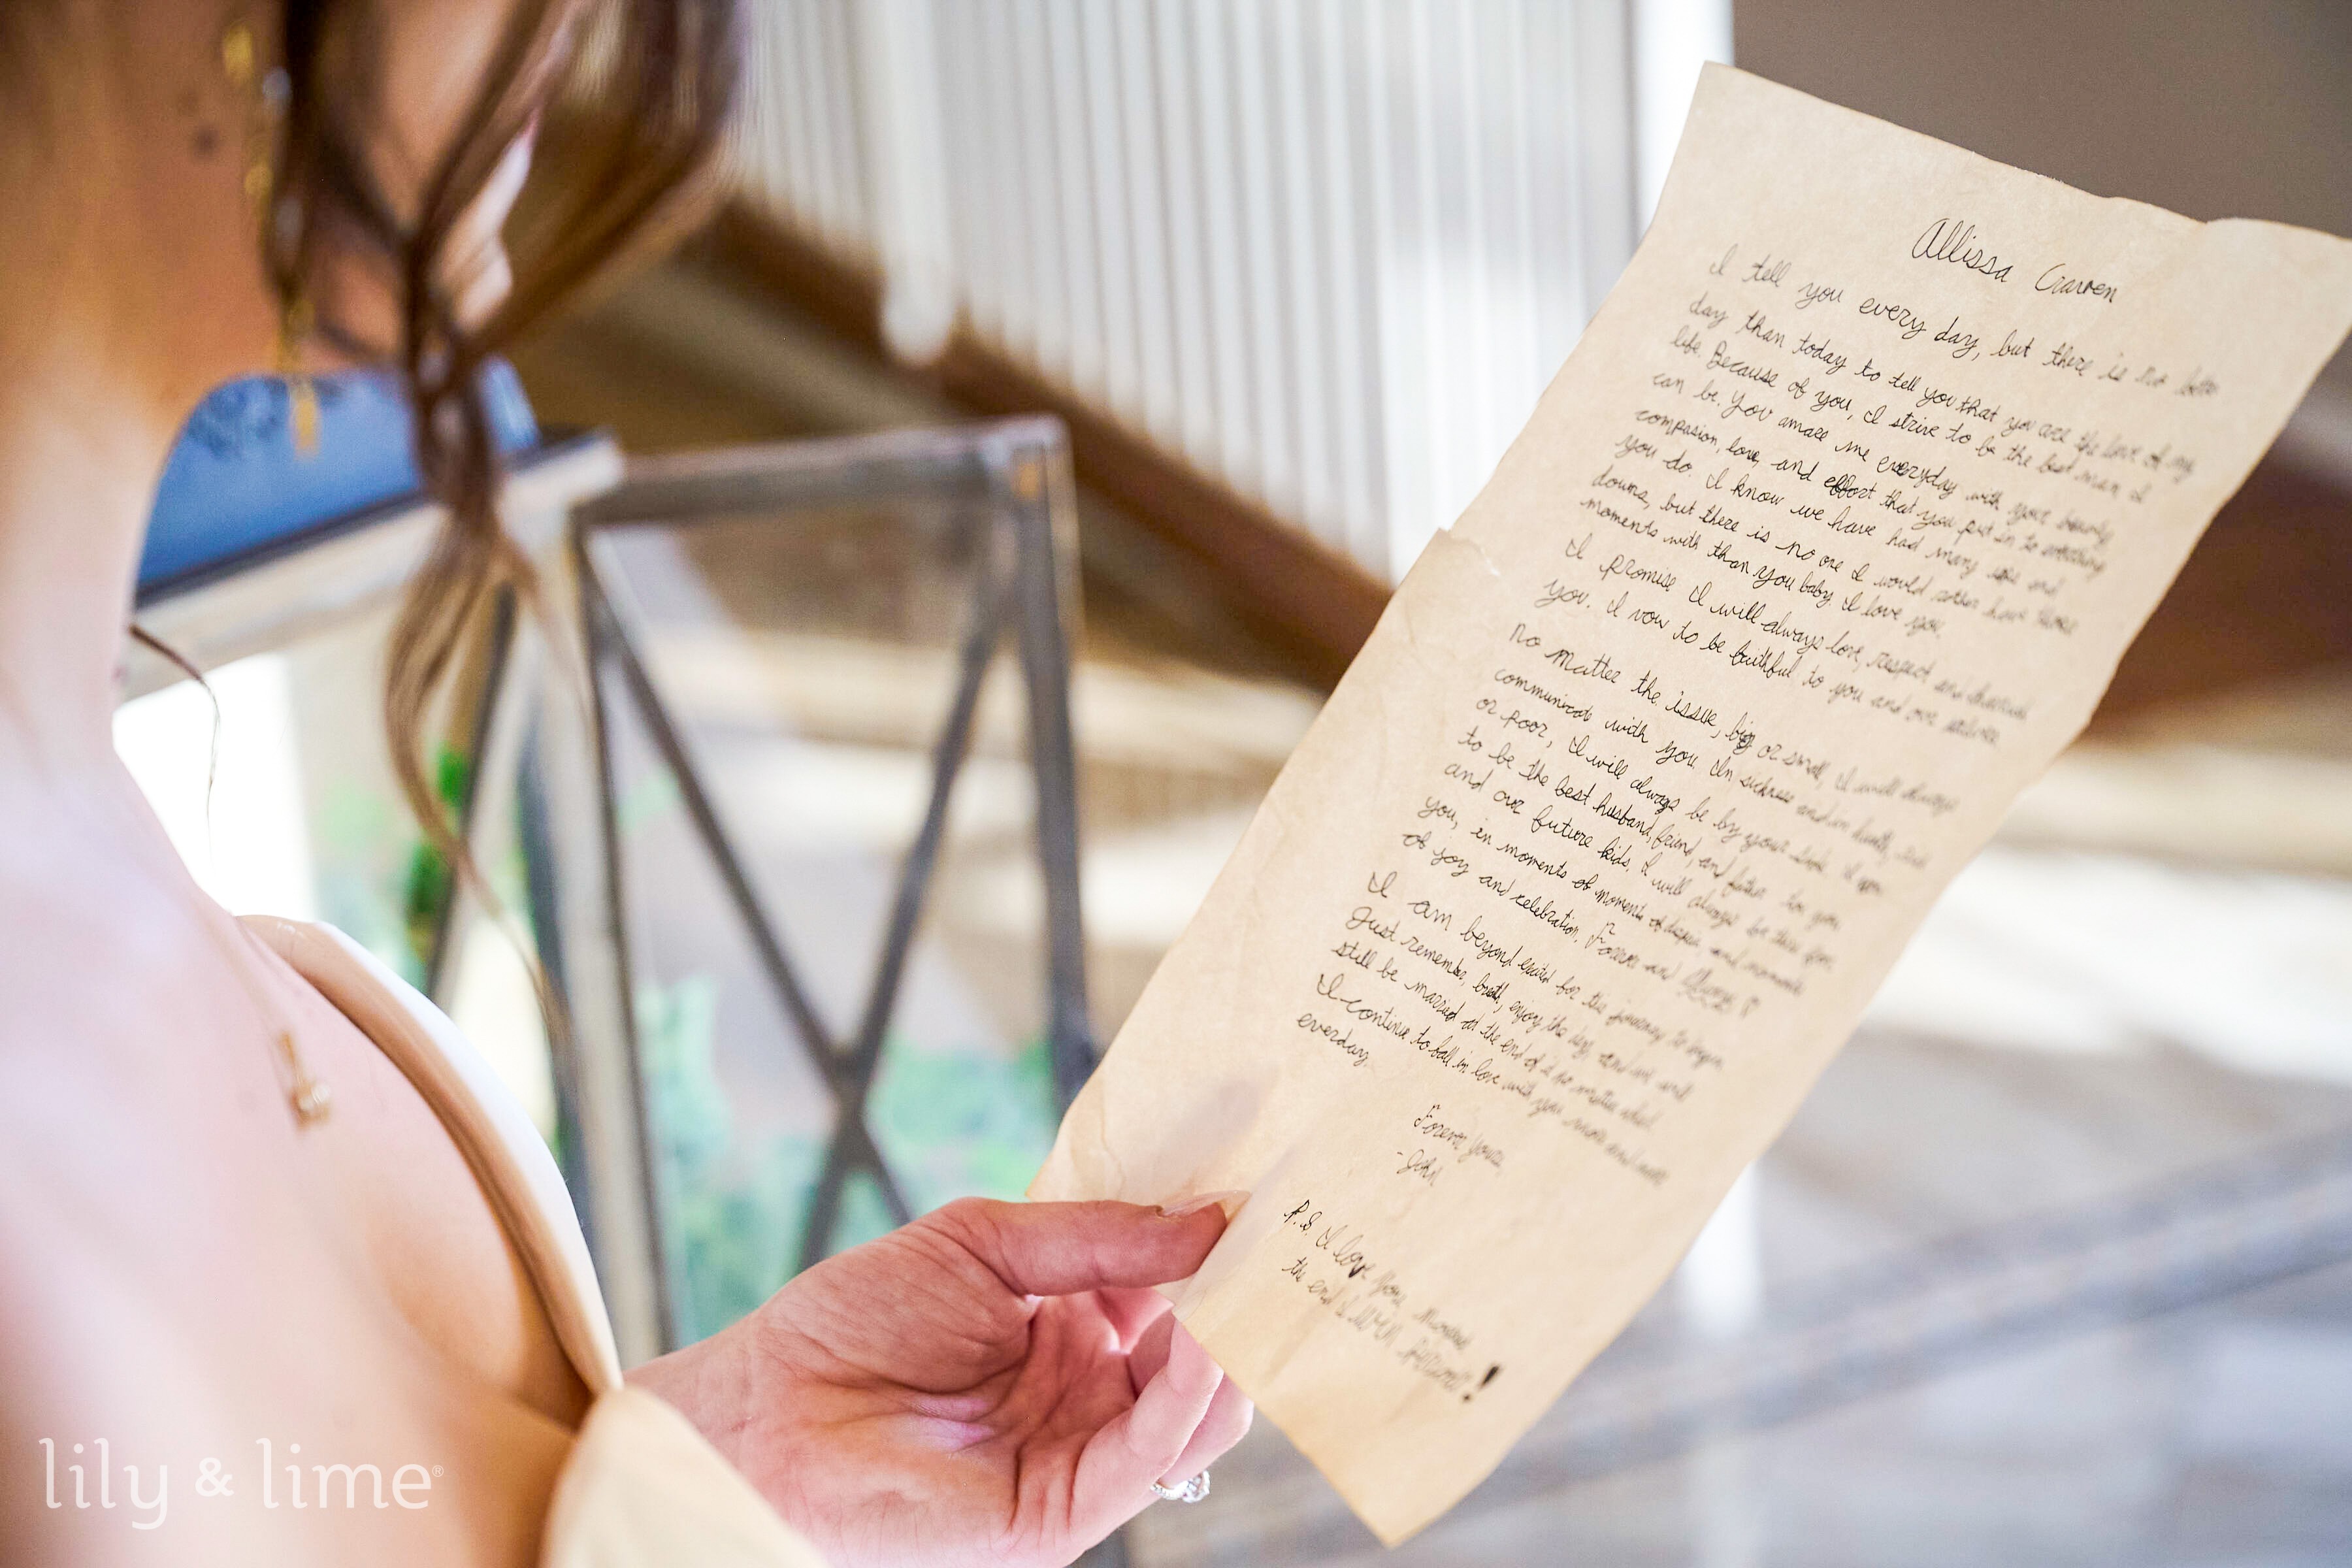 Allissa Garren
I tell you every day, but there is no
day than today to tell you that you are the love of my
life. Because of you, I strive to be the best man I
can be. You amaze me everyday with your beauty,
compasion, love, and effort that you put in to
you do. I know we have had many ups and
downs, but there is no one I would rather have those
moments with than you baby. I love you.
I promise I will always love, respect and
you. I vow to be faithful to you and our
No matter the issue, big or small, I will always
communicate with you. In sickness and in health,
or poor, I will always be by your side. I
to be the best husband, friend, and father to you
and our future kids. I will always be there for
you, in moments of moments of and moments
of joy and celebration. Forever and Always
I am beyond excited for this journey to begin
Just remember, breath, enjoy the day and we will
still be married at the end of it no matter what
I continue to fall in love with you more and more
everday.
Forever yours,
-John
P.S. I love you,
the end I
lily & lime®